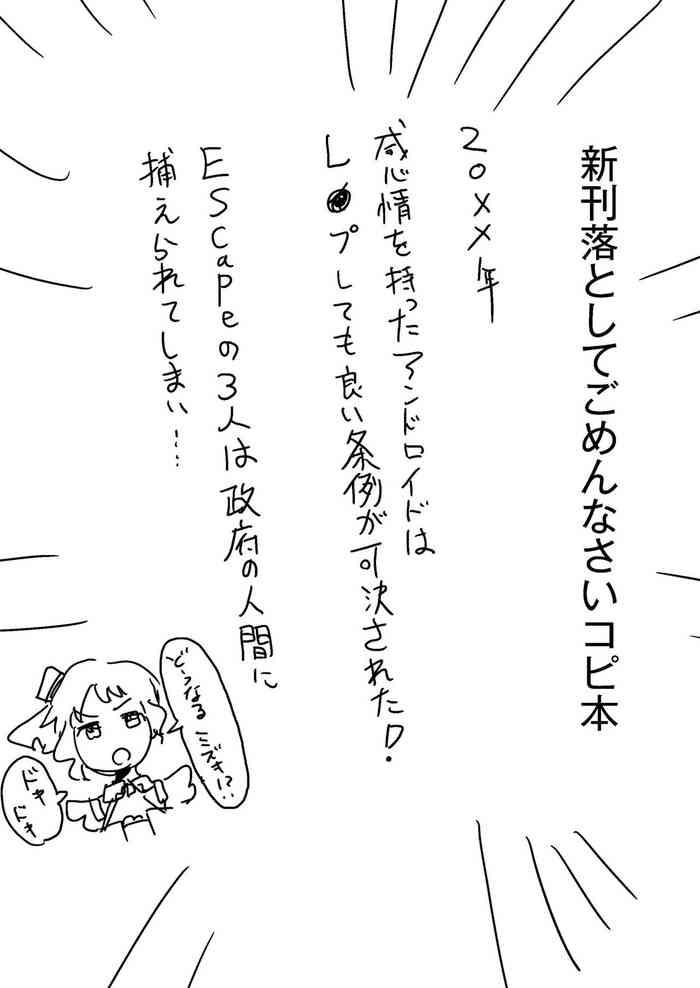 新刊落としてごめんなさいコピ本
20XX年
感情を持ったアンドロイドは
レ●プしても良い条例が可決された!
EScapeの3人は政府の人間に
捕えられてしまい……
どーなる ミズキ!?
ドキ
ドキ